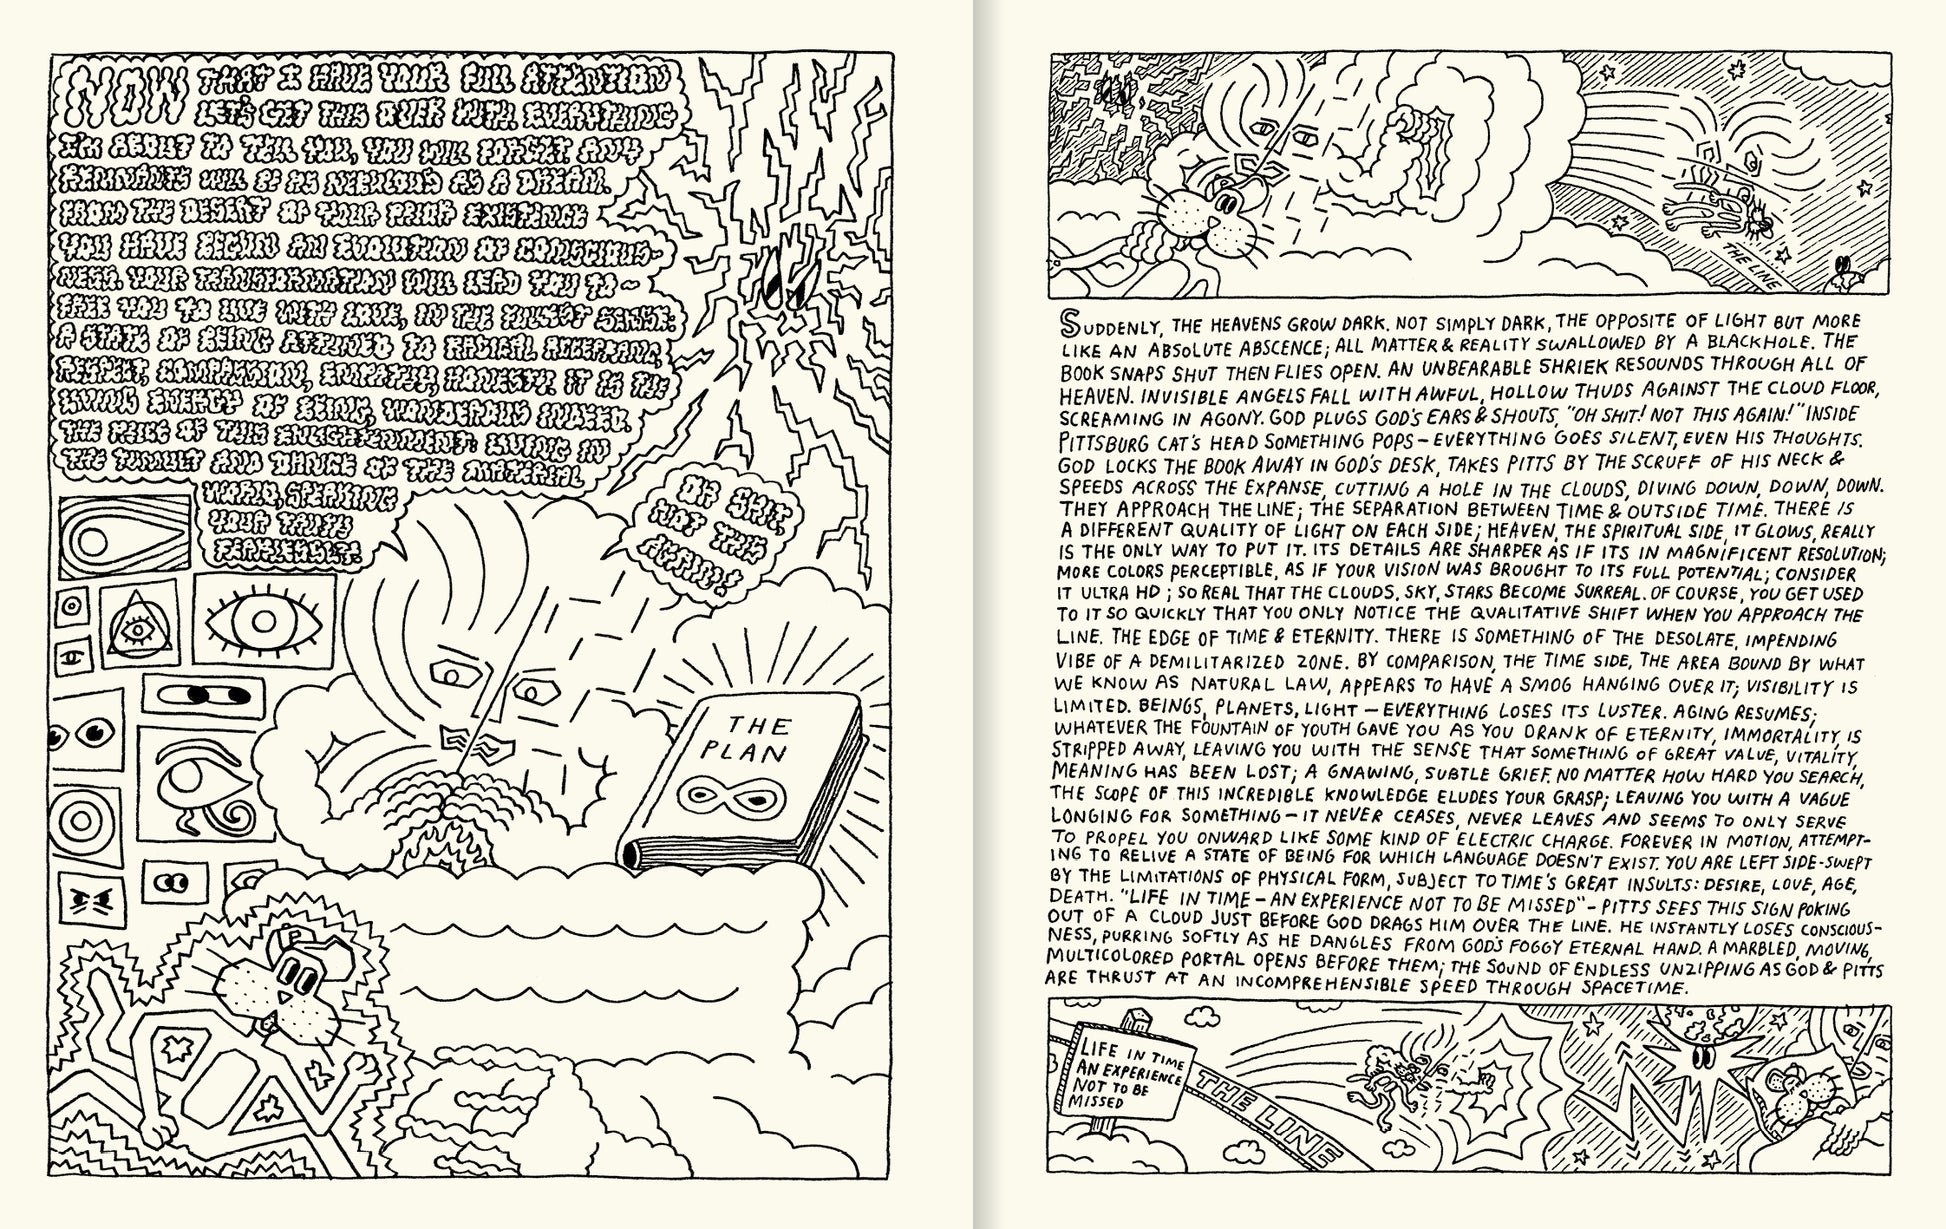 NOW THAT I HAVE YOUR FULL ATTENTION
LET'S GET THIS OVER WITH. EVERYTHING
I'M ABOUT TO TELL YOU, YOU WILL FORGET. ANY
REMNANTS WILL BE AS NEBULOUS AS A DREAM.
FROM THE DESERT OF YOUR PRIOR EXISTENCE
YOU HAVE BEGUN AN EVOLUTION OF CONSCIOUS-
NESS. YOUR TRANSFORMATION WILL LEAD YOU TO ~
FREE YOU TO LIVE WITH LOVE, IN THE FULLEST SENSE:
A STATE OF BEING ATTUNED TO RADICAL ACCEPTANCE,
RESPECT, COMPASSION, EMPATHY, HONESTY. IT IS THE
LIVING ENERGY OF BEING, WONDEROUS INDEED.
THE PRICE OF THIS ENLIGHTENMENT: LIVING IN
THE TUMULT AND DANCE OF THE MATERIAL
WORLD, SPEAKING
YOUR TRUTH
FEARLESSLY.
OH SHIT,
NOT THIS
AGAIN!
THE
PLAN
THE LINE
SUDDENLY, THE HEAVENS GROW DARK. NOT SIMPLY DARK, THE OPPOSITE OF LIGHT BUT MORE
LIKE AN ABSOLUTE ABSCENCE; ALL MATTER & REALITY SWALLOWED BY A BLACKHOLE. THE
BOOK SNAPS SHUT THEN FLIES OPEN. AN UNBEARABLE SHRIEK RESOUNDS THROUGH ALL OF
HEAVEN. INVISIBLE ANGELS FALL WITH AWFUL, HOLLOW THUDS AGAINST THE CLOUD FLOOR,
SCREAMING IN AGONY. GOD PLUGS GOD'S EARS & SHOUTS, "OH SHIT! NOT THIS AGAIN!" INSIDE
PITTSBURG CAT'S HEAD SOMETHING POPS – EVERYTHING GOES SILENT, EVEN HIS THOUGHTS.
GOD LOCKS THE BOOK AWAY IN GOD'S DESK, TAKES PITTS BY THE SCRUFF OF HIS NECK &
SPEEDS ACROSS THE EXPANSE, CUTTING A HOLE IN THE CLOUDS, DIVING DOWN, DOWN, DOWN.
THEY APPROACH THE LINE; THE SEPARATION BETWEEN TIME & OUTSIDE TIME. THERE IS
A DIFFERENT QUALITY OF LIGHT ON EACH SIDE; HEAVEN, THE SPIRITUAL SIDE, IT GLOWS, REALLY
IS THE ONLY WAY TO PUT IT. ITS DETAILS ARE SHARPER AS IF ITS IN MAGNIFICENT RESOLUTION;
MORE COLORS PERCEPTIBLE, AS IF YOUR VISION WAS BROUGHT TO ITS FULL POTENTIAL; CONSIDER
IT ULTRA HD; SO REAL THAT THE CLOUDS, SKY, STARS BECOME SURREAL. OF COURSE, YOU GET USED
TO IT SO QUICKLY THAT YOU ONLY NOTICE THE QUALITATIVE SHIFT WHEN YOU APPROACH THE
LINE. THE EDGE OF TIME & ETERNITY. THERE IS SOMETHING OF THE DESOLATE, IMPENDING
VIBE OF A DEMILITARIZED ZONE. BY COMPARISON, THE TIME SIDE, THE AREA BOUND BY WHAT
WE KNOW AS NATURAL LAW, APPEARS TO HAVE A SMOG HANGING OVER IT; VISIBILITY IS
LIMITED. BEINGS, PLANETS, LIGHT – EVERYTHING LOSES ITS LUSTER. AGING RESUMES;
WHATEVER THE FOUNTAIN OF YOUTH GAVE YOU AS YOU DRANK OF ETERNITY, IMMORTALITY, IS
STRIPPED AWAY, LEAVING YOU WITH THE SENSE THAT SOMETHING OF GREAT VALUE, VITALITY,
MEANING HAS BEEN LOST; A GNAWING, SUBTLE GRIEF. NO MATTER HOW HARD YOU SEARCH,
THE SCOPE OF THIS INCREDIBLE KNOWLEDGE ELUDES YOUR GRASP; LEAVING YOU WITH A VAGUE
LONGING FOR SOMETHING – IT NEVER CEASES, NEVER LEAVES AND SEEMS TO ONLY SERVE
TO PROPEL YOU ONWARD LIKE SOME KIND OF ELECTRIC CHARGE. FOREVER IN MOTION, ATTEMPT-
ING TO RELIVE A STATE OF BEING FOR WHICH LANGUAGE DOESN'T EXIST. YOU ARE LEFT SIDE-SWEPT
BY THE LIMITATIONS OF PHYSICAL FORM, SUBJECT TO TIME'S GREAT INSULTS: DESIRE, LOVE, AGE,
DEATH. "LIFE IN TIME – AN EXPERIENCE NOT TO BE MISSED" – PITTS SEES THIS SIGN POKING
OUT OF A CLOUD JUST BEFORE GOD DRAGS HIM OVER THE LINE. HE INSTANTLY LOSES CONSCIOUS-
NESS, PURRING SOFTLY AS HE DANGLES FROM GOD'S FOGGY ETERNAL HAND. A MARBLED, MOVING,
MULTICOLORED PORTAL OPENS BEFORE THEM; THE SOUND OF ENDLESS UNZIPPING AS GOD & PITTS
ARE THRUST AT AN INCOMPREHENSIBLE SPEED THROUGH SPACETIME.
LIFE IN TIME
AN EXPERIENCE
NOT TO BE
MISSED
THE LINE